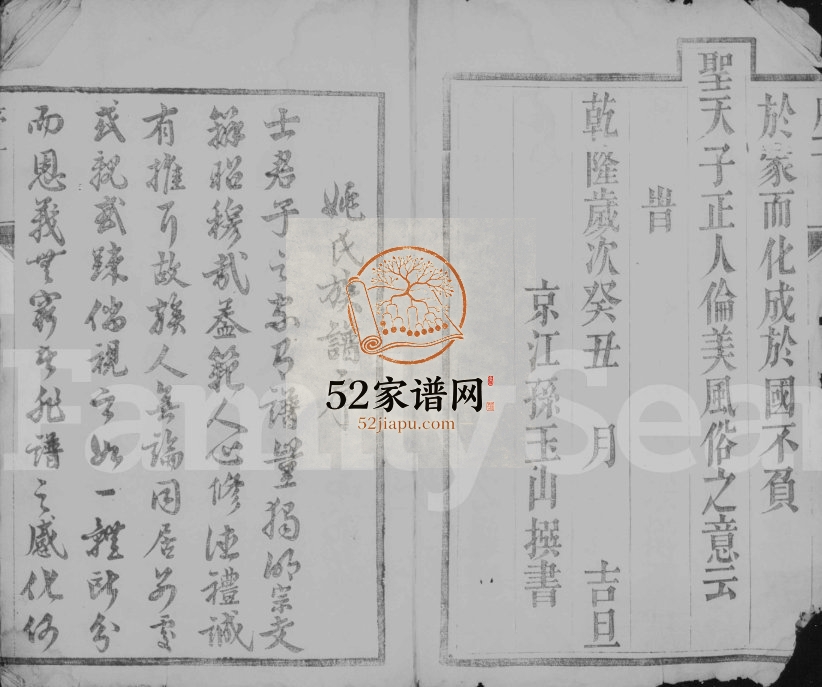 於家而化成於國不負
聖天子正人倫美風俗之意云
旹
乾隆歲次癸丑 月 吉旦
京江孫玉山撰書
姚氏族譜序
士君子之家有譜豈獨明宗支
昭穆哉蓋範人心修德禮誠
有推行故族人無論同居
或親或疎倘視之如一體
而恩義非譜之感化何
52家谱网
52jiapu.com
FamilySear